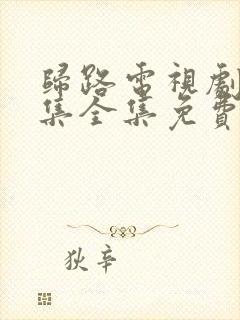 歸路電視劇
集全集免費
狄辛